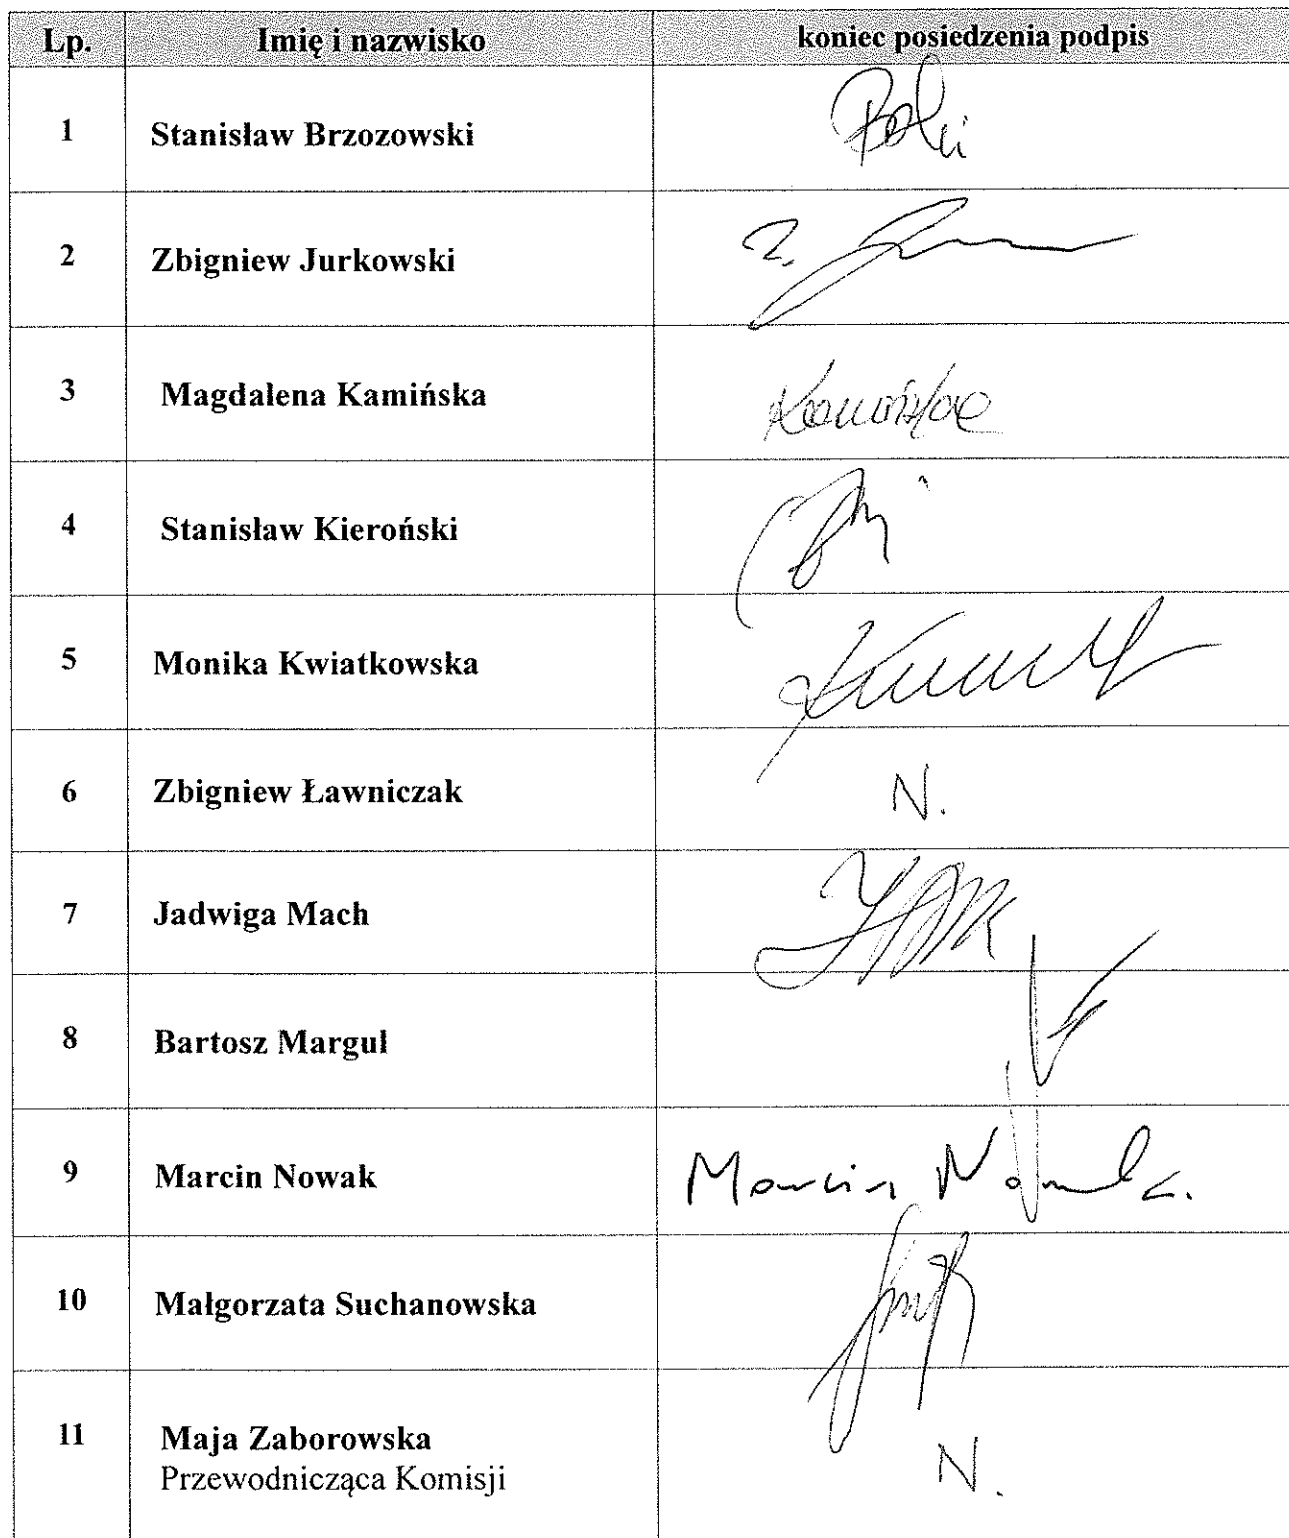 Lp. Imię i nazwisko koniec posiedzenia podpis
1 Stanisław Brzozowski
2 Zbigniew Jurkowski
3 Magdalena Kamińska Kamińska
4 Stanisław Kieroński
5 Monika Kwiatkowska
6 Zbigniew Ławniczak N.
7 Jadwiga Mach
8 Bartosz Margul
9 Marcin Nowak Marcin Nowak.
10 Małgorzata Suchanowska
11 Maja Zaborowska
Przewodnicząca Komisji N.